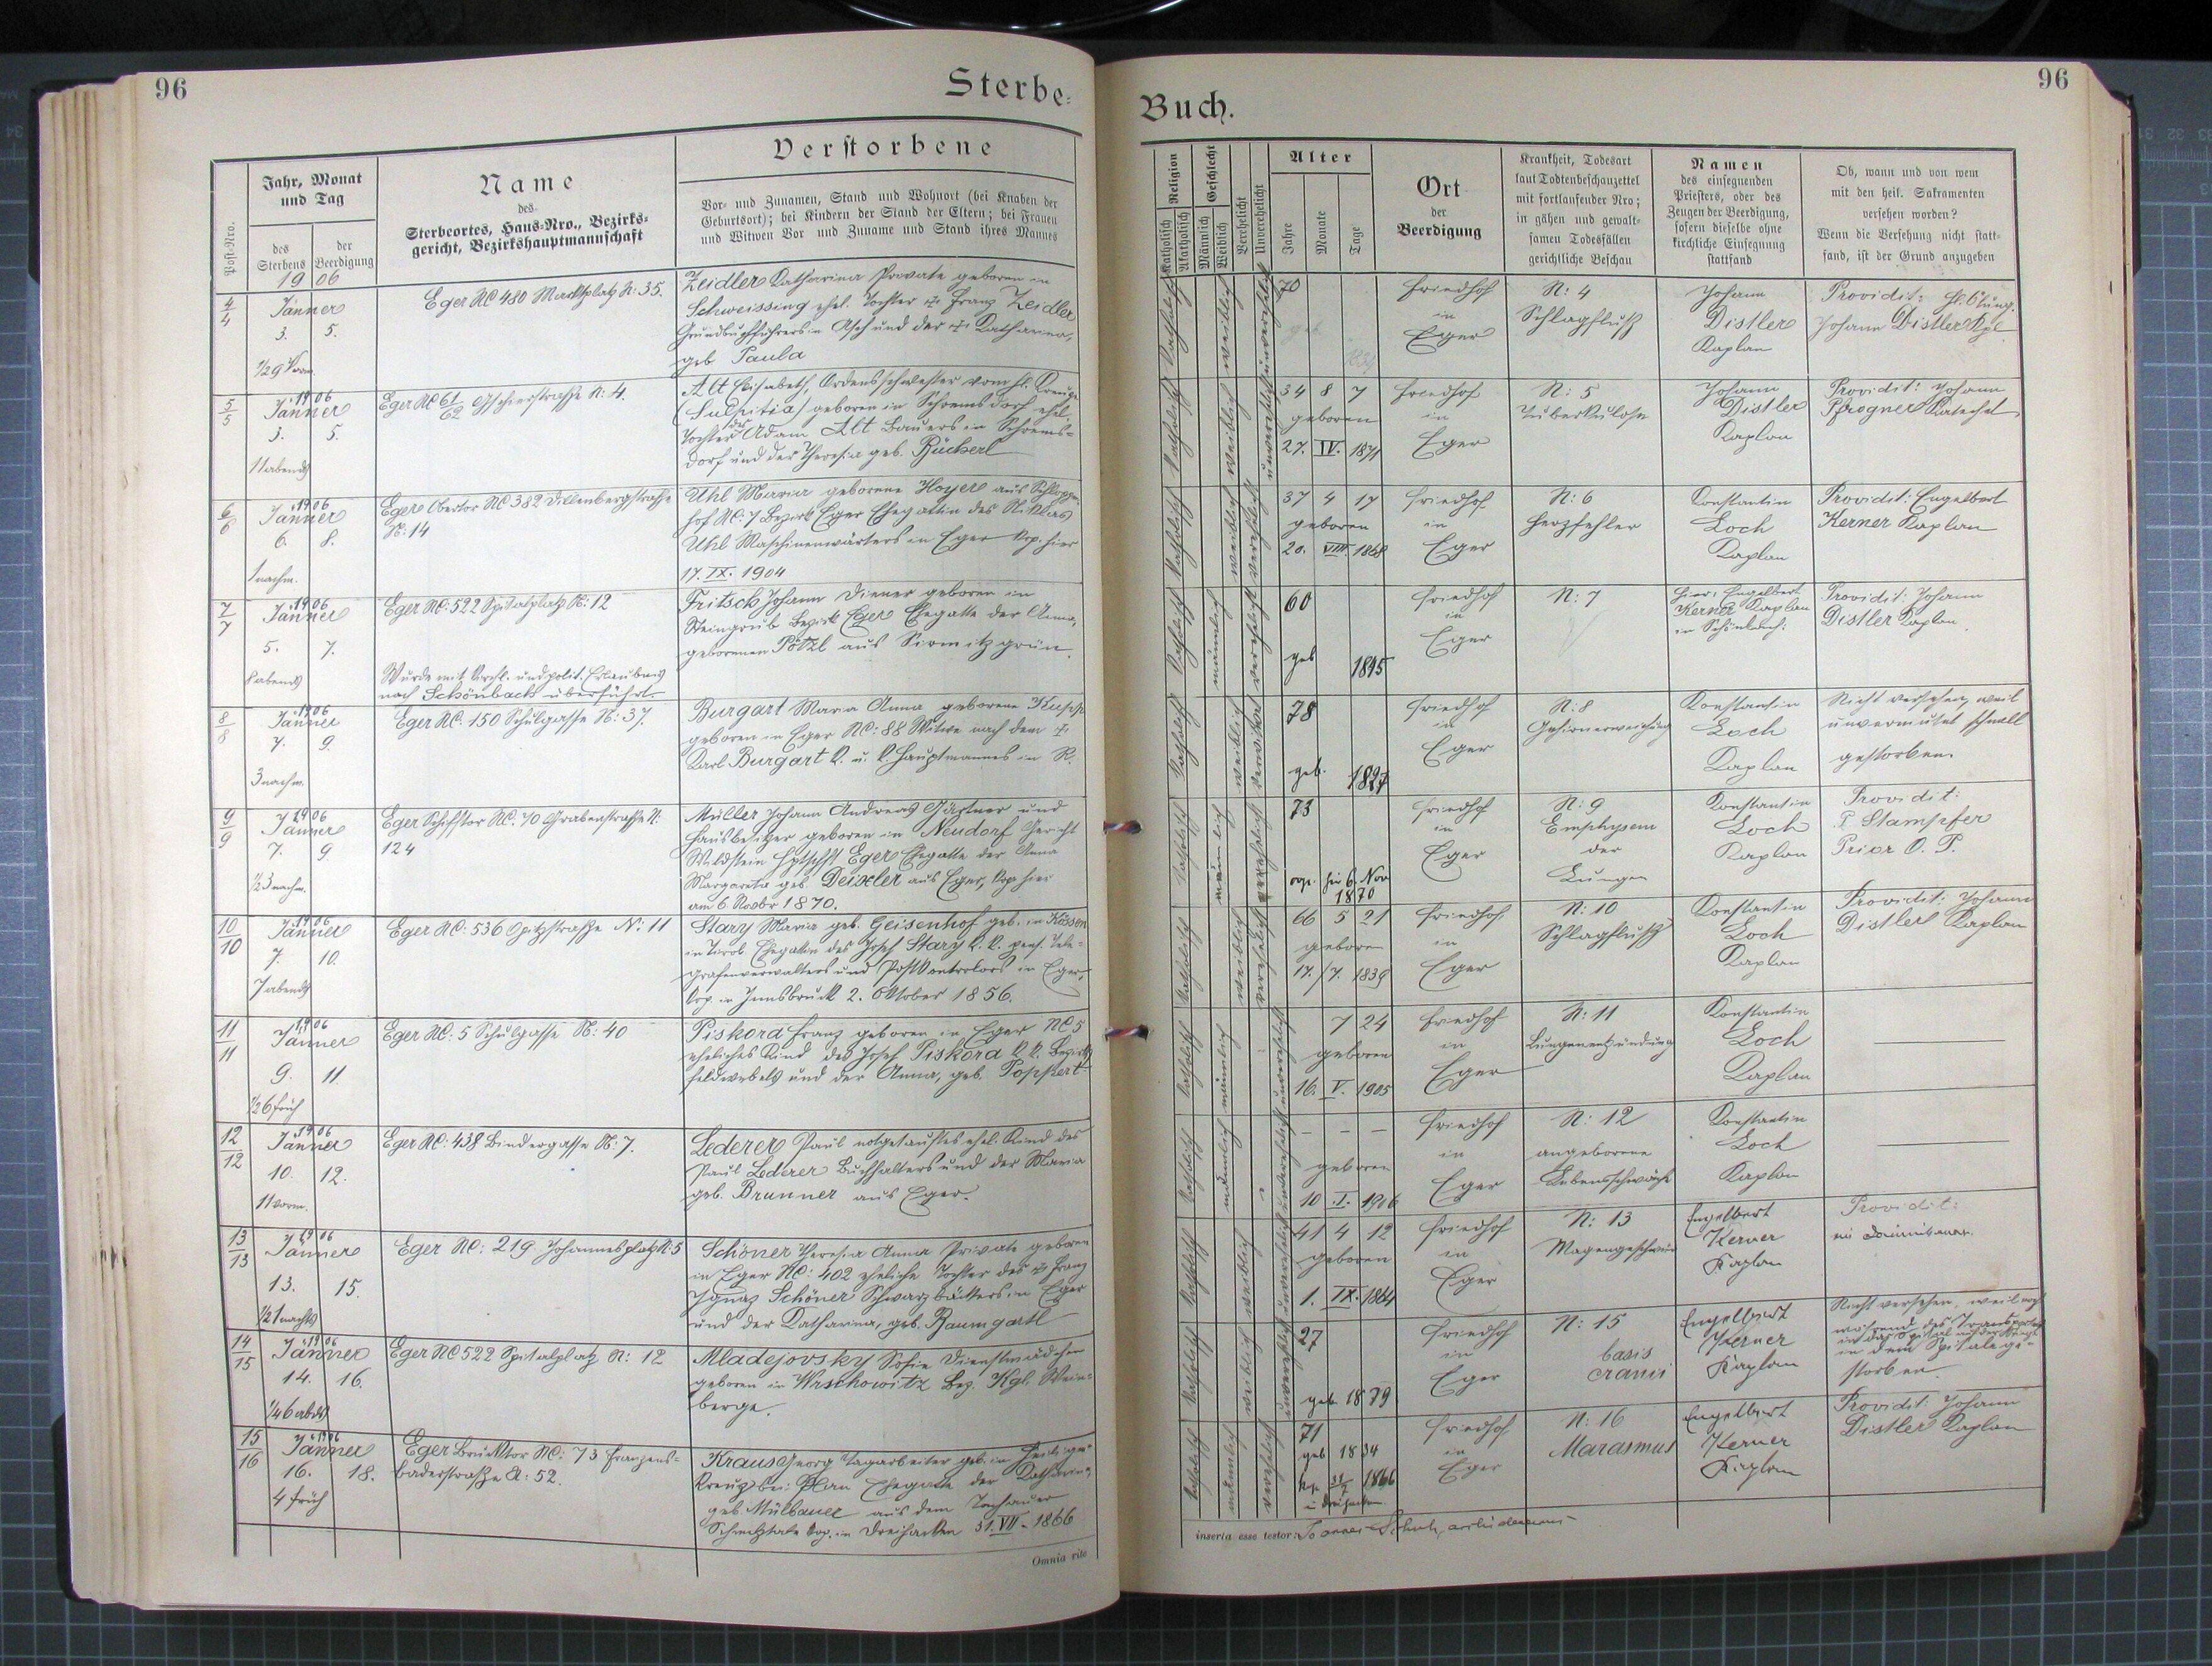 96
Sterbe-
Buch.
96
Post-Nro.
Jahr, Monat
und Tag
des
Sterbens
der
Beerdigung
Name
des
Sterbeortes, Haus-Nro., Bezirks-
gericht, Bezirkshauptmannschaft
Verstorbene
Vor- und Zunamen, Stand und Wohnort (bei Knaben der
Geburtsort); bei Kindern der Stand der Eltern; bei Frauen
und Witwen Vor und Zuname und Stand ihres Mannes
Religion
Katholisch
Akatholisch
Geschlecht
Männlich
Weiblich
Verehelicht
Unverehelicht
Alter
Jahre
Monate
Tage
Ort
der
Beerdigung
Krankheit, Todesart
laut Todtenbeschauzettel
mit fortlaufender Nro;
in gähen und gewalt-
samen Todesfällen
gerichtliche Beschau
Namen
des einsegnenden
Priesters, oder des
Zeugen der Beerdigung,
sofern dieselbe ohne
kirchliche Einsegnung
stattfand
Ob, wann und von wem
mit den heil. Sakramenten
versehen worden?
Wenn die Versehung nicht statt-
fand, ist der Grund anzugeben
4
4
1906
Jänner
3. 5.
1/2 9 Vorm.
Eger NC 480 Marktplatz N: 35.
Zeidler Katharina Private geboren in
Schweissing ehel. Tochter d. + Franz Zeidler
Grundbuchführers in Asch und der + Katharina,
geb Paula
katholisch
weiblich
unverehelicht
70
geb
Friedhof
in
Eger
N: 4
Schlagfluß
Johann
Distler
Kaplan
Providit:
Johann Distler Kpl
5
5
1906
Jänner
3. 5.
11 abends
Eger NC 61/62 N: 4.
Alt Elisabeth, Ordensschwester vom hl. Kreuze
(Sulpitia) geboren in Schremsdorf ehel.
Tochter des Adam Alt Bauers in Schrems-
dorf und der Theresia geb. Bücherl
katholisch
weiblich
unverehelicht
34 8 7
geboren
27. IV. 1871
Friedhof
in
Eger
N: 5
Tuberkulose
Johann
Distler
Kaplan
Providit: Johann
Pfrogner Katechet
6
6
1906
Jänner
6. 8.
1 nachm.
Eger Obertor NC 382 Dillenbergstraße
N: 14
Uhl Maria geborene Hoyer aus
hof NC: 7 Bezirk Eger Ehegattin des Niklas
Uhl Maschinenwärters in Eger Kop. hier
17. IX. 1904
katholisch
weiblich
verehelicht
37 4 17
geboren
20. VIII. 1868
Friedhof
in
Eger
N: 6
Herzfehler
Konstantin
Loch
Kaplan
Providit: Engelbert
Kerner Kaplan
7
7
1906
Jänner
5. 7.
8 abends
Eger NC: 522 Spitalplatz N: 12
Wurde mit kirchl. und polit. Erlaubnis
nach Schönbach überführt
Fritsch Johann Diener geboren in
Steingrub Bezirk Eger Ehegatte der Anna,
geborenen Pötzl aus Sirmitzgrün.
katholisch
männlich
verehelicht
60
geb 1845
Friedhof
in
Eger
N: 7
Hier: Engelbert
Kerner Kaplan
in Schönbach:
Providit: Johann
Distler Kaplan.
8
8
1906
Jänner
7. 9.
3 nachm.
Eger NC. 150 Schulgasse N: 37.
Burgart Maria Anna geborene Kupp
geboren in Eger NC: 88 Witwe nach dem +
Karl Burgart k. u. k. Hauptmannes in R.
katholisch
weiblich
verwitwet
78
geb. 1827
Friedhof
in
Eger
N: 8
Gehirnerweichung
Konstantin
Loch
Kaplan
Nicht versehen, weil
unvermutet schnell
gestorben.
9
9
1906
Jänner
7. 9
1/2 3 nachm.
Eger Schifftor NC. 70 Grabenstraße N:
124
Müller Johann Andreas Gärtner und
Hausbesitzer geboren in Neudorf Gericht
Wildstein Hptschft Eger Ehegatte der Anna
Margareta geb. Deixler aus Eger, Kop hier
am 6. Novbr 1870.
katholisch
männlich
verehelicht
73
cop. hier 6. Nov
1870
Friedhof
in
Eger
N: 9
Emphysem
der
Lungen
Konstantin
Loch
Kaplan
Providit:
P Stampfer
Prior O. P.
10
10
1906
Jänner
7. 10.
7 abends
Eger NC: 536 Opitzstraße N: 11
Stary Maria geb. Geisenhof geb. in Kössen
in Tirol Ehegattin des Josef Stary k. k. pens. Tele-
grafenverwalters und Postkontrolors in Eger,
Kop. in Innsbruck 2. Oktober 1856.
katholisch
weiblich
verehelicht
66 5 21
geboren
17./7. 1839
Friedhof
in
Eger
N: 10
Schlagfluß
Konstantin
Loch
Kaplan
Providit: Johann
Distler Kaplan
11
11
1906
Jänner
9. 11.
1/2 6 früh
Eger NC: 5 Schulgasse N: 40
Piskora Franz geboren in Eger NC 5
eheliches Kind des Josef Piskora k. k. Bezirks
feldwebels und der Anna, geb. Poppert
katholisch
männlich
unverehelicht
7 24
geboren
16. V. 1905
Friedhof
in
Eger
N: 11
Lungenentzündung
Konstantin
Loch
Kaplan
12
12
1906
Jänner
10. 12.
11 vorm.
Eger NC: 438 Bindergasse N: 7.
Lederer Paul notgetauftes ehel. Kind des
Paul Lederer Buchhalters und der Maria
geb. Brunner aus Eger.
katholisch
männlich
unverehelicht
– – –
geboren
10. I. 1906
Friedhof
in
Eger
N: 12
angeborene
Lebensschwäche
Konstantin
Loch
Kaplan
13
13
1906
Jänner
13. 15.
1/2 1 nachts
Eger NC: 219 Johannesplatz N: 5
Schöner Theresia Anna Private geboren
in Eger NC: 402 eheliche Tochter des + Franz
Ignaz Schöner Schwarzbäckers in Eger
und der Katharina, geb. Baumgartl
katholisch
weiblich
unverehelicht
41 4 12
geboren
1. IX. 1864
Friedhof
in
Eger
N: 13
Magengeschwür
Engelbert
Kerner
Kaplan
Providit:
ein Dominikaner.
14
15
1906
Jänner
14. 16.
1/4 6 abds
Eger NC 522 Spitalplatz N: 12
Mladejovsky Sofie Dienstmädchen
geboren in Wrschowitz Bez. Kgl. Wein-
berge.
katholisch
weiblich
unverehelicht
27
geb 1879
Friedhof
in
Eger
N: 15
basis
cranii
Engelbert
Kerner
Kaplan
Nicht versehen, weil noch
während des Transportes
in das Spital
in dem Spitale ge-
storben.
15
16
1906
Jänner
16. 18.
4 früh
Eger Brucktor NC: 73 Franzens-
baderstraße N: 52.
Kraus Georg Tagarbeiter geb. in Heiligen
Kreuz bei Plan Ehegatte der Katharina
geb. Mülbauer aus dem Tachauer
Kop. in Dreihacken 31. VII. 1866
katholisch
männlich
verehelicht
71
geb 1834
kop 31/7 1866
in Dreihacken
Friedhof
in
Eger
N: 16
Marasmus
Engelbert
Kerner
Kaplan
Providit Johann
Distler Kaplan
Omnia rite
inserta esse testor: